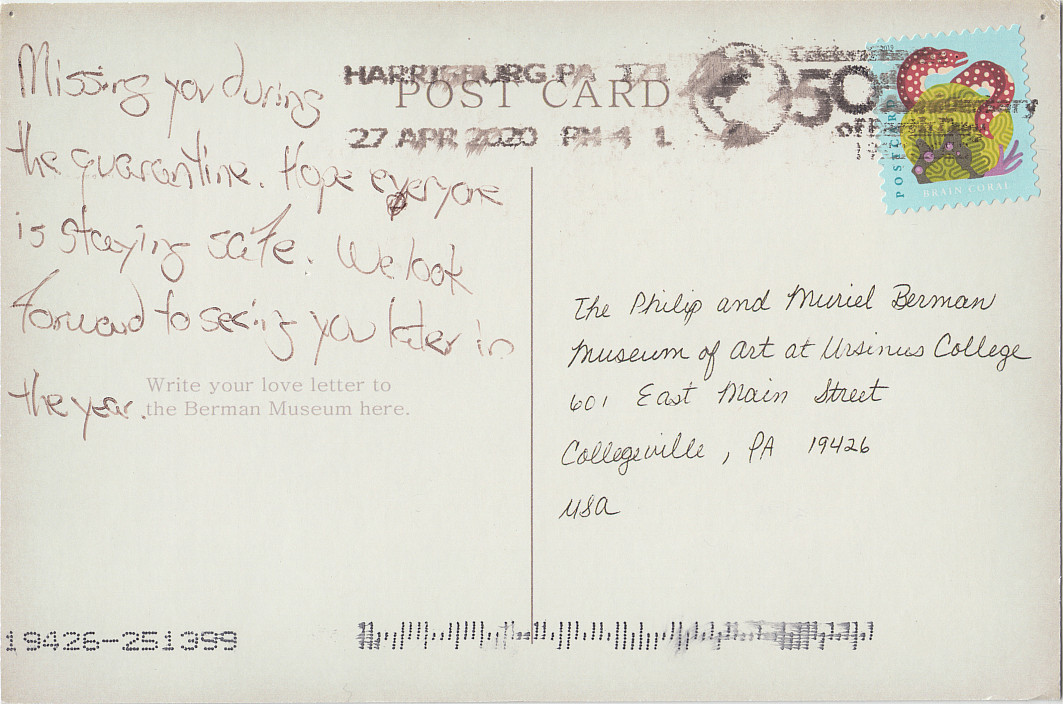 Missing you during
the quarantine. Hope everyone
is staying safe. We look
forward to seeing you later in
the year.
Write your love letter to
the Berman Museum here.
HARRISBURG PA 171
POST CARD
27 APR 2020 PM 4 L
50
POSTCARD
BRAIN CORAL
The Philip and Muriel Berman
Museum of Art at Ursinus College
601 East Main Street
Collegeville, PA 19426
USA
19426-251399